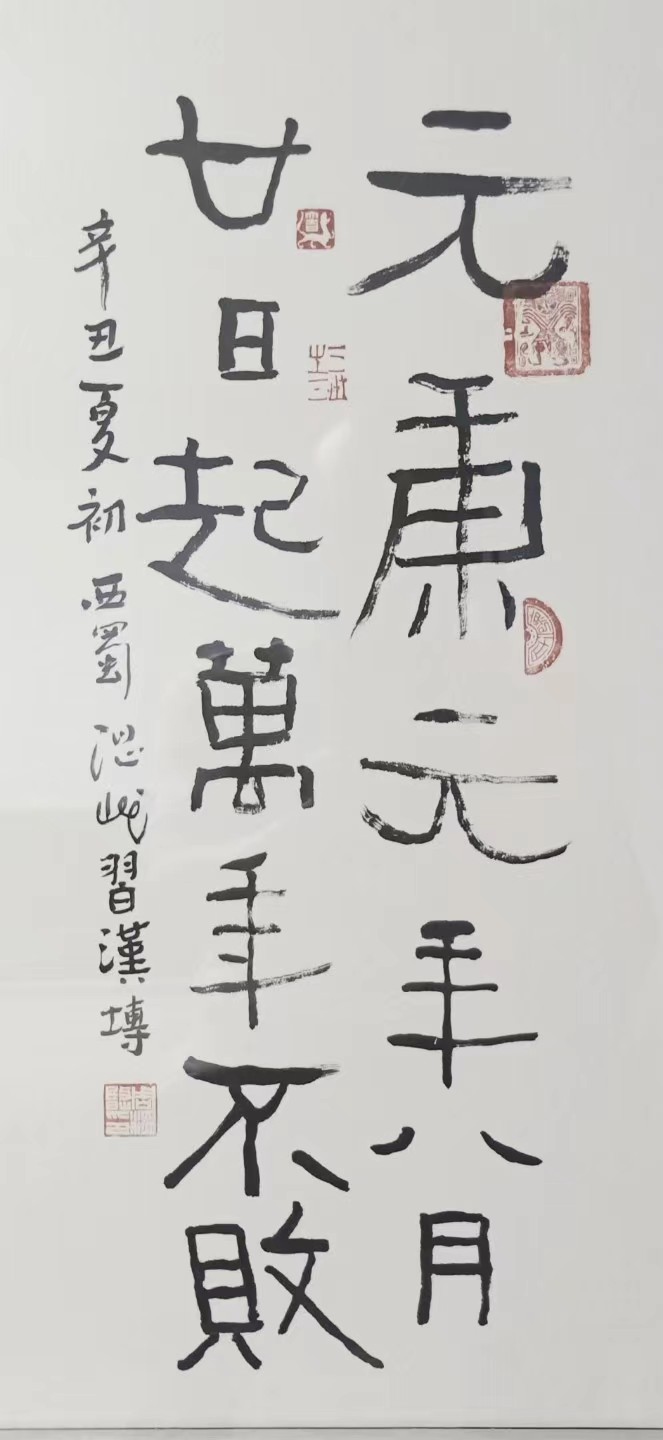 元康元年八月
廿日起萬年不敗
辛丑夏初西蜀 習漢塼